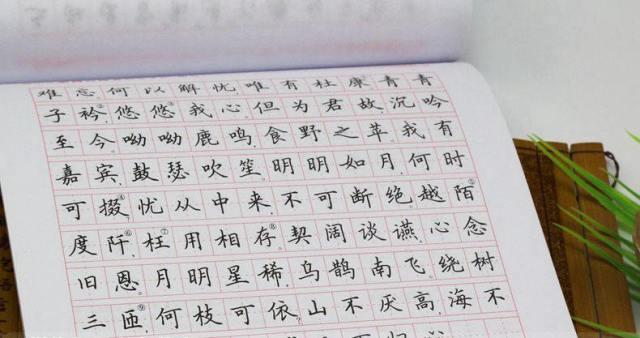 难忘何以解忧唯有杜康青青
子衿②悠悠③我心,但为君故,沉吟
至今.呦呦鹿鸣,食野之苹.我有
嘉宾,鼓瑟吹笙.明明如月,何时
可掇④,忧从中来,不可断绝.越陌⑤
度阡⑥,枉⑦用相存⑧.契阔谈讌,心念
旧恩.月明星稀,乌鹊南飞,绕树
三匝⑨,何枝可依.山不厌高,海不